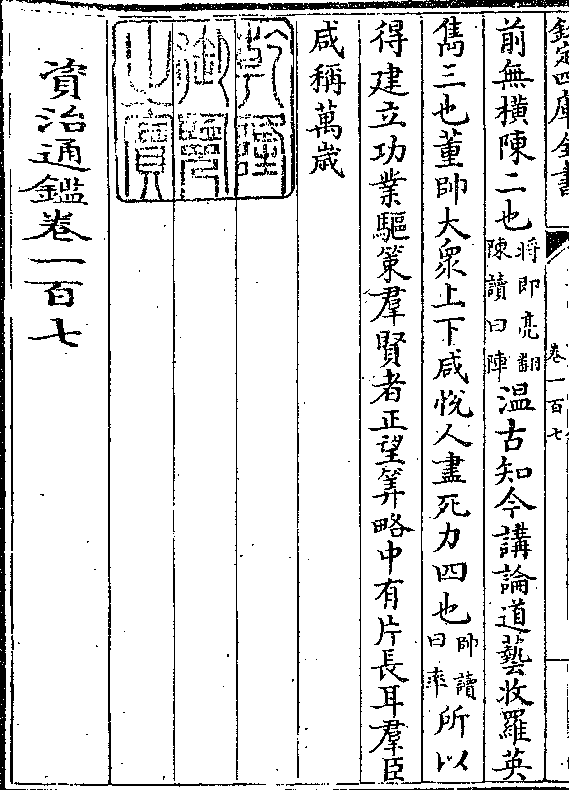 欽定四庫全書
卷一百七
前無橫陳二也將即亮翻陳讀曰陣温古知今講論道藝收羅英
雋三也董帥大衆上下咸悅人盡死力四也帥讀曰率所以
得建立功業驅策羣賢者正望筭略中有片長耳羣臣
咸稱萬歲
乾隆御覽之寶
資治通鑑卷一百七